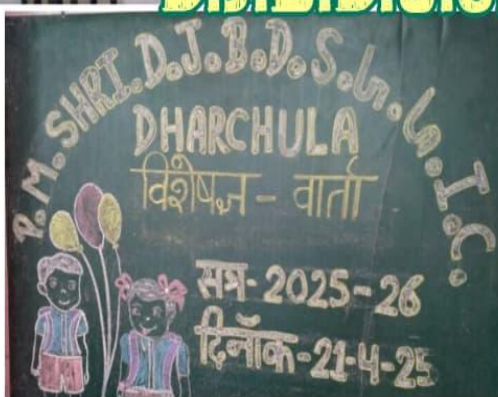 P.M. SHRI.D.J.B.D.S.G.G.I.C.
DHARCHULA
विशेषज्ञ - वार्ता
सत्र- 2025-26
दिनाँक-21-4-25